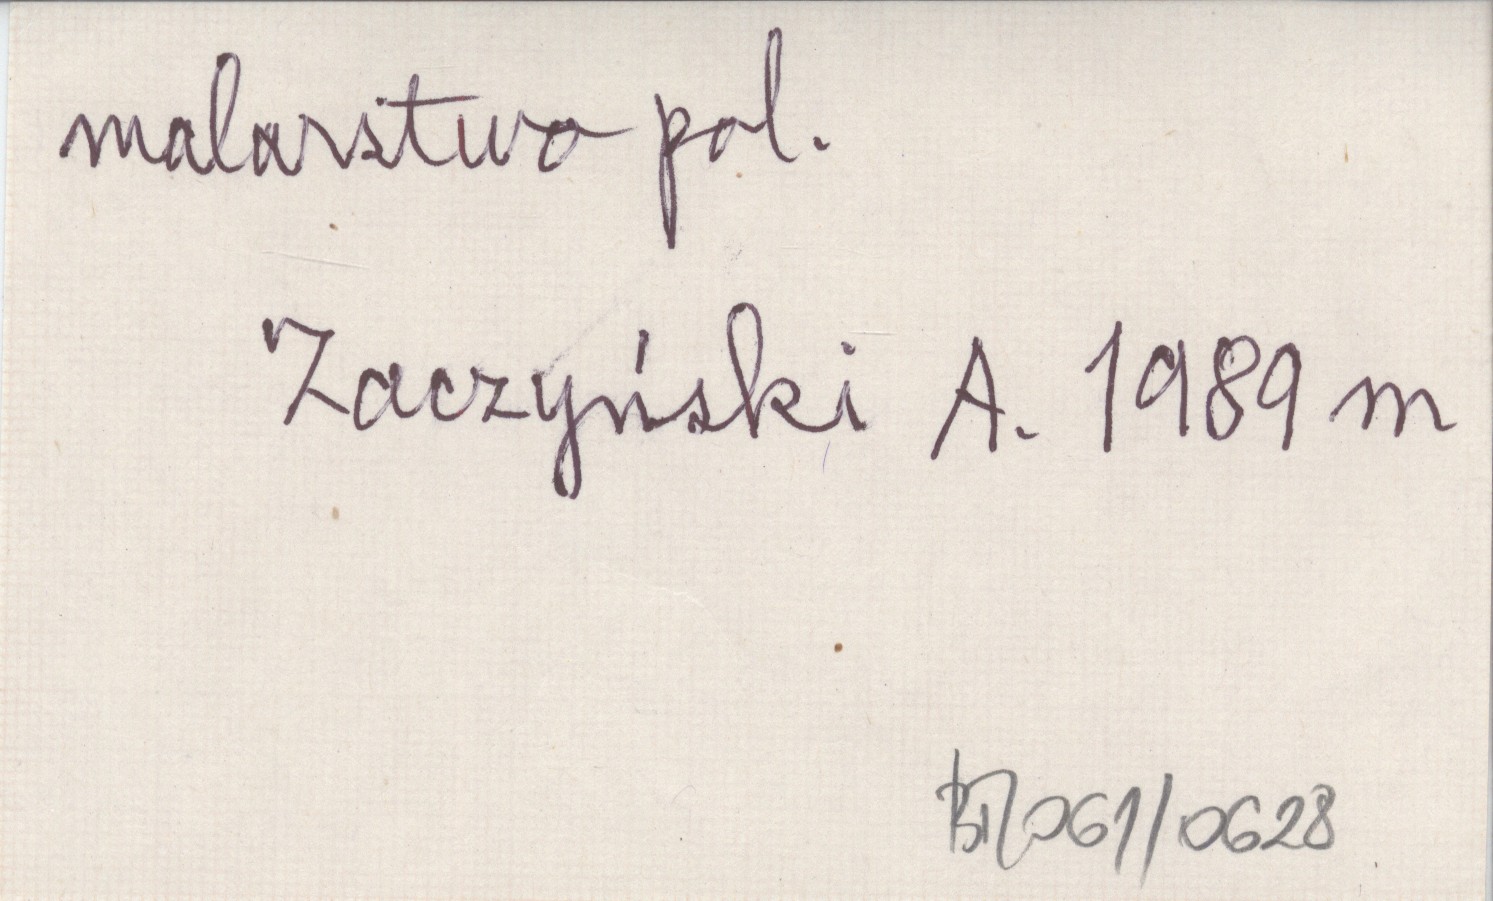 malarstwo pol.
Zaczyński A. 1989 m
061/0628